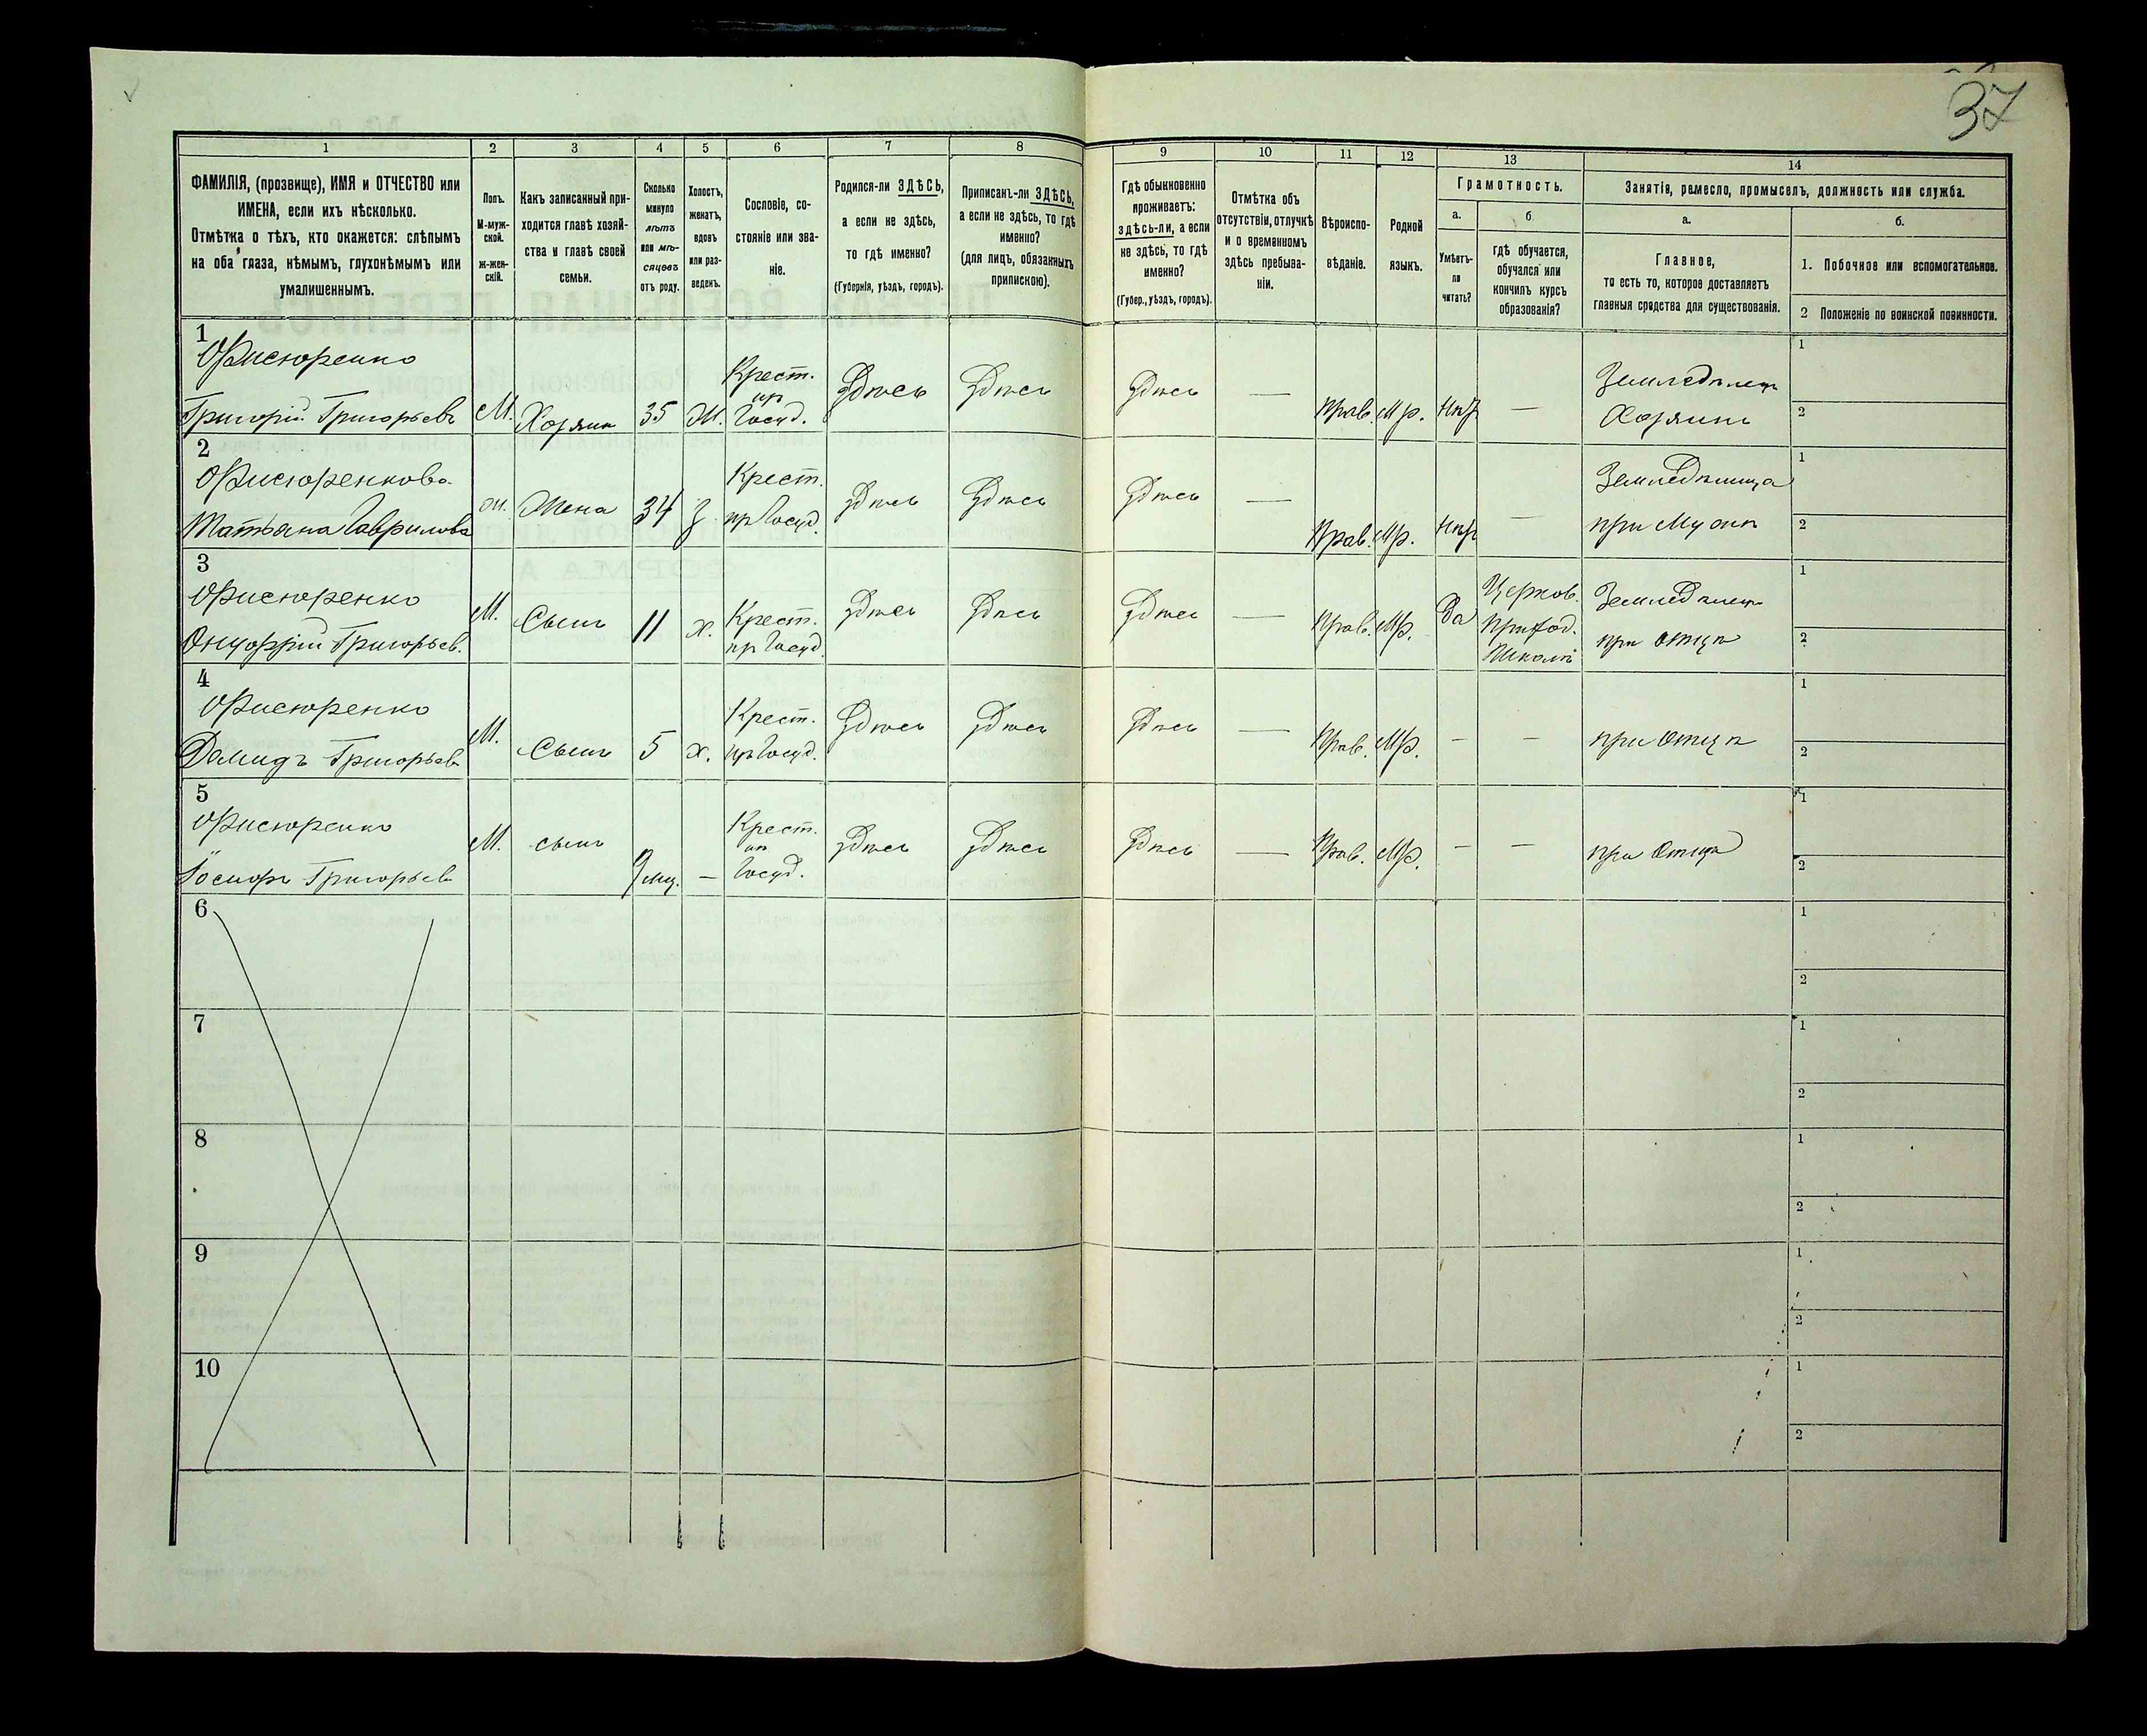 37
1 2 3 4 5 6 7 8 9 10 11 12 13 14
ФАМИЛІЯ, (прозвище), ИМЯ и ОТЧЕСТВО или
ИМЕНА, если ихъ нѣсколько.
Отмѣтка о тѣхъ, кто окажется: слѣпымъ
на оба глаза, нѣмымъ, глухонѣмымъ или
умалишеннымъ.
Полъ.
М-муж-
ской.
Ж-жен-
скій.
Какъ записанный при-
ходится главѣ хозяй-
ства и главѣ своей
семьи.
Сколько
минуло
лѣтъ
или мѣ-
сяцевъ
отъ роду.
Холостъ,
женатъ,
вдовъ
или раз-
веденъ.
Сословіе, со-
стояніе или зва-
ніе.
Родился-ли ЗДѢСЬ,
а если не здѣсь,
то гдѣ именно?
(Губернія, уѣздъ, городъ).
Приписанъ-ли ЗДѢСЬ,
а если не здѣсь, то гдѣ
именно?
(для лицъ, обязанныхъ
припискою).
Гдѣ обыкновенно
проживаетъ:
здѣсь-ли, а если
не здѣсь, то гдѣ
именно?
(Губер., уѣздъ, городъ).
Отмѣтка объ
отсутствіи, отлучкѣ
и о временномъ
здѣсь пребыва-
ніи.
Вѣроиспо-
вѣданіе.
Родной
языкъ.
Грамотность.
а.
Умѣетъ-
ли
читать?
б.
гдѣ обучается,
обучался или
кончилъ курсъ
образованія?
Занятія, ремесло, промыселъ, должность или служба.
а.
Главное,
то есть то, которое доставляетъ
главныя средства для существованія.
б.
1. Побочное или вспомогательное.
2 Положеніе по воинской повинности.
1
Фисюренко
Григорій Григорьевъ
М.
Хозяинъ
35
Ж.
Крест.
пр
Госуд.
Здѣсь
Здѣсь
Здѣсь
—
Прав.
Мр.
Нѣтъ
—
Земледѣлецъ
Хозяинъ
1
2
2
Фисюренкова
Татьяна Гаврилова
Ж.
Жена
34
З.
Крест.
пр Госуд.
Здѣсь
Здѣсь
Здѣсь
—
Прав.
Мр.
Нѣтъ
—
при Мужѣ
1
2
3
Фисюренко
Онуфрій Григорьев.
М.
Сынъ
11
х.
Крест.
пр Госуд.
Здѣсь
Здѣсь
Здѣсь
—
Прав.
Мр.
Да
Церков.
Приход.
Школѣ
Земледѣлецъ
при Отцѣ
1
2
4
Фисюренко
Демидъ Григорьев
М.
Сынъ
5
х.
Крест.
пр Госуд.
Здѣсь
Здѣсь
Здѣсь
—
Прав.
Мр.
—
—
при Отцѣ
1
2
5
Фисюренко
Іосифъ Григорьев
М.
сынъ
9 мц.
—
Крест.
пр
Госуд.
Здѣсь
Здѣсь
Здѣсь
—
Прав.
Мр.
—
—
при Отцѣ
1
2
6
1
2
7
1
2
8
1
2
9
1
2
10
1
2